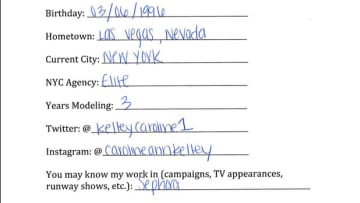 Birthday: 03/06/1996
Hometown: Las Vegas, Nevada
Current City: New York
NYC Agency: Elite
Years Modeling: 3
Twitter: @ kelleycaroline1
Instagram: @ carolineannkelley
You may know my work in (campaigns, TV appearances,
runway shows, etc.): Sephora